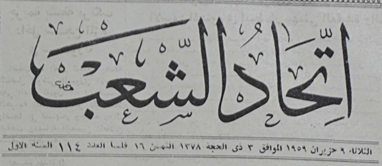 اتحاد الشعب
الثلاثاء ٩ حزيران ١٩٥٩ الموافق ٣ ذي الحجة ١٣٧٨ الثمن ١٦ فلسا العدد ١١٤ السنة الاولى